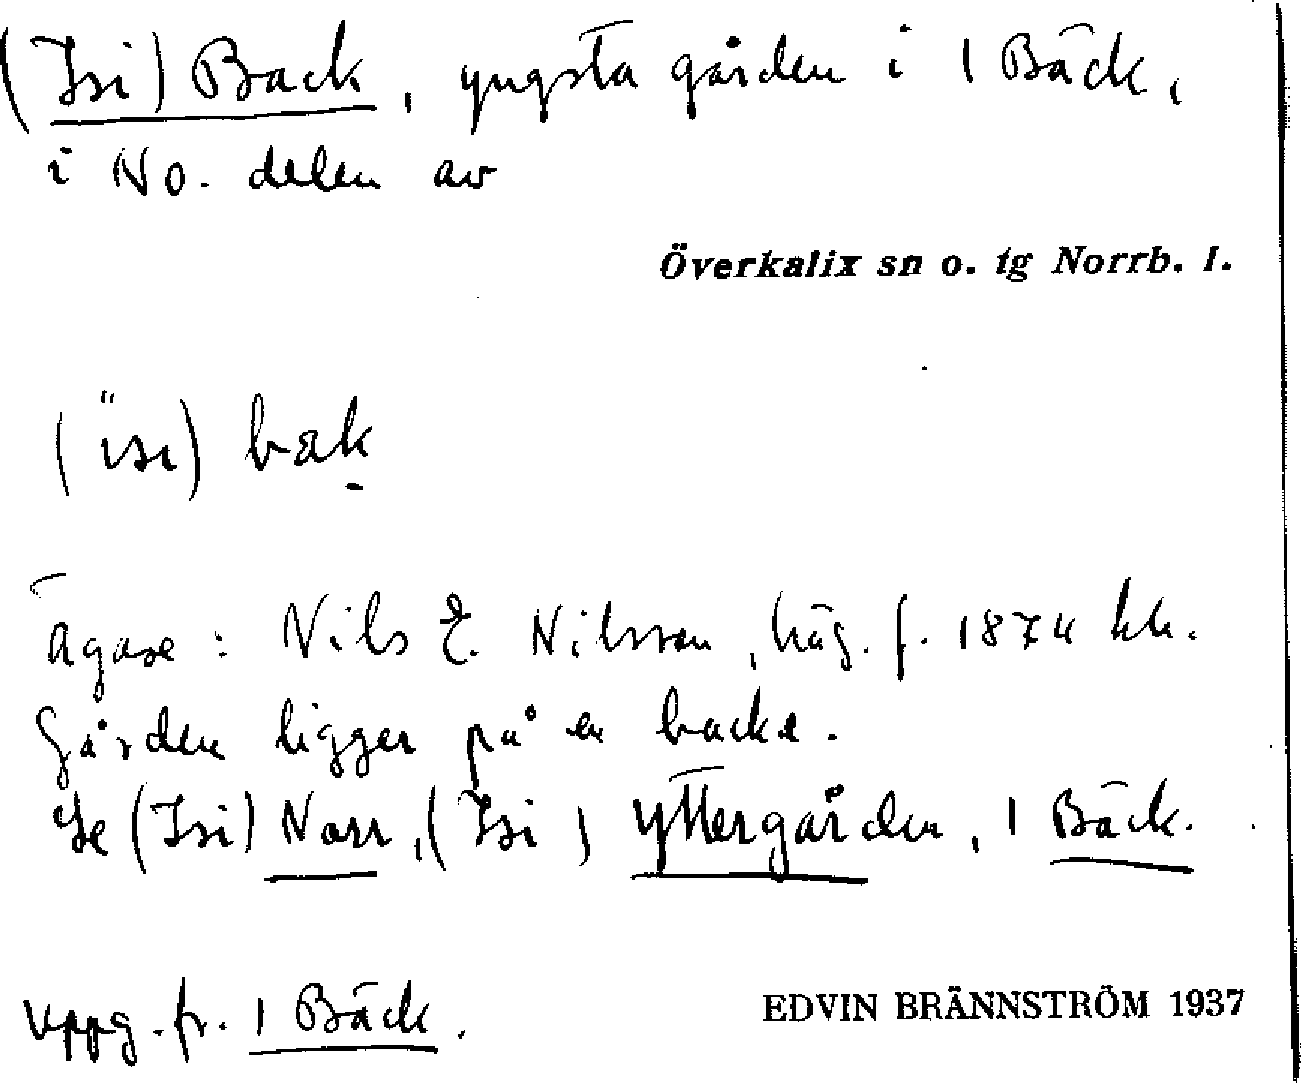 (Isi) Back, yngsta gården i 1 Bäck,
i No. delen av
Överkalix sn o. tg Norrb. l.
(ïsi) bak
Ägare: Nils E. Nilsson, häg. f. 1874 hh.
Gården ligger på en backe.
Se (Isi) Norr, (Isi) Yttergården, 1 Bäck.
Uppg. fr. 1 Bäck.
EDVIN BRÄNNSTRÖM 1937